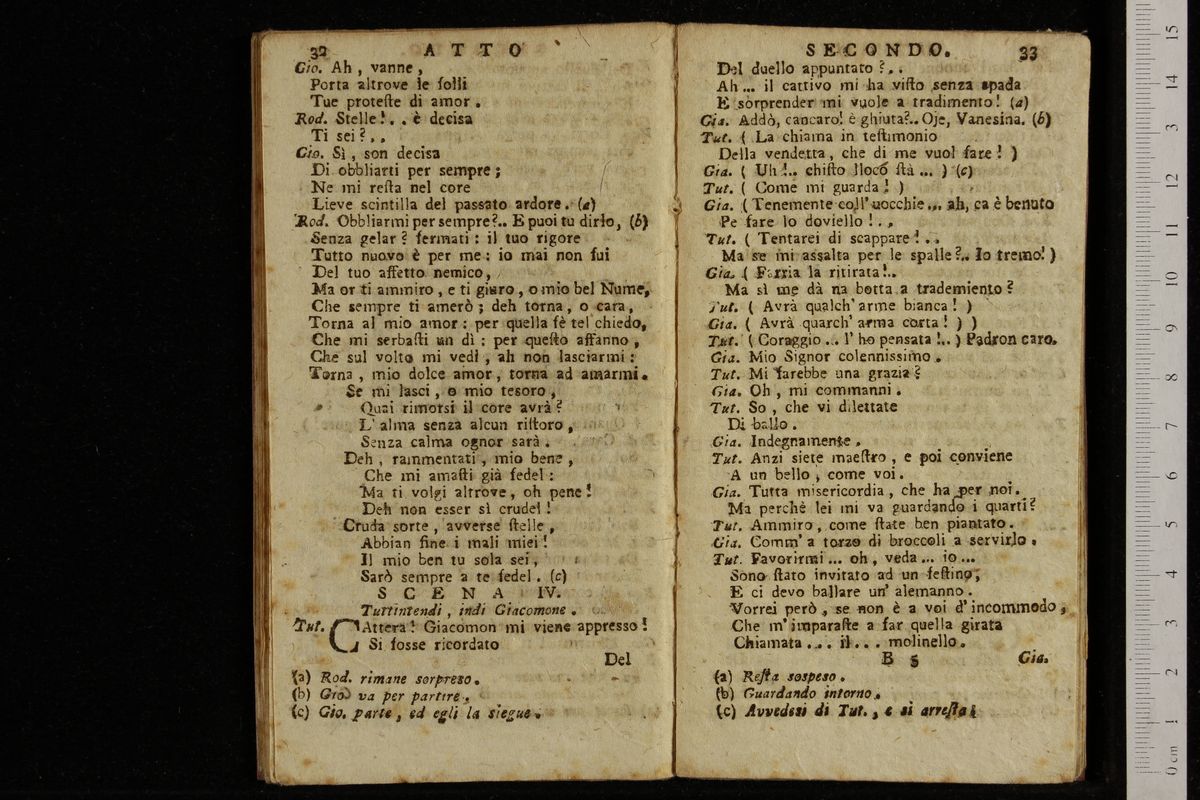 32 ATTO
Gio. Ah, vanne,
Porta altrove le folli
Tue proteſte di amor.
Rod. Stelle!.. è decisa
Ti sei?..
Gio. Sì, son decisa
Di obbliarti per sempre;
Ne mi reſta nel core
Lieve scintilla del passato ardore. (a)
Rod. Obbliarmi per sempre?.. E puoi tu dirlo, (b)
Senza gelar? fermati: il tuo rigore
Tutto nuovo è per me: io mai non fui
Del tuo affetto nemico,
Ma or ti ammiro, e ti giuro, o mio bel Nume,
Che sempre ti amerò; deh torna, o cara,
Torna al mio amor: per quella fè tel chiedo,
Che mi serbaſti un dì: per queſto affanno,
Che sul volto mi vedi, ah non lasciarmi:
Torna, mio dolce amor, torna ad amarmi.
Se mi lasci, o mio tesoro,
Quai rimorsi il core avrà?
L'alma senza alcun riſtoro,
Senza calma ognor sarà.
Deh, rammentati, mio bene,
Che mi amaſti già fedel:
Ma ti volgi altrove, oh pene!
Deh non esser sì crudel!
Cruda sorte, avverse ſtelle,
Abbian fine i mali miei!
Il mio ben tu sola sei,
Sarò sempre a te fedel. (c)
SCENA IV.
Tuttintendi, indi Giacomone.
Tut. CAttera! Giacomon mi viene appresso!
Si fosse ricordato
Del
(a) Rod. rimane sorpreso.
(b) Gio. va per partire.
(c) Gio. parte, ed egli la siegue.
SECONDO. 33
Del duello appuntato?..
Ah... il cattivo mi ha viſto senza spada
E sorprender mi vuole a tradimento! (a)
Gia. Addò, cancaro! è ghiuta?.. Oje, Vanesina. (b)
Tut. ( La chiama in teſtimonio
Della vendetta, che di me vuol fare! )
Gia. ( Uh!.. chiſto lloco ſtà... ) (c)
Tut. ( Come mi guarda! )
Gia. ( Tenemente coll'uocchie... ah, ca è benuto
Pe fare lo doviello!..
Tut. ( Tentarei di scappare!..
Ma se mi assalta per le spalle?.. Io tremo! )
Gia. ( Farria la ritirata!..
Ma sì me dà na botta a trademiento?
Tut. ( Avrà qualch'arme bianca! )
Gia. ( Avrà quarch'arma corta! ) )
Tut. ( Coraggio.. l'ho pensata!.. ) Padron caro.
Gia. Mio Signor colennissimo.
Tut. Mi farebbe una grazia?
Gia. Oh, mi commanni.
Tut. So, che vi dilettate
Di ballo.
Gia. Indegnamente.
Tut. Anzi siete maeſtro, e poi conviene
A un bello, come voi.
Gia. Tutta misericordia, che ha per noi.
Ma perchè lei mi va guardando i quarti?
Tut. Ammiro, come ſtate ben piantato.
Gia. Comm'a torzo di broccoli a servirlo.
Tut. Favorirmi... oh, veda... io...
Sono ſtato invitato ad un feſtino,
E ci devo ballare un'alemanno.
Vorrei però, se non è a voi d'incommodo,
Che m'imparaſte a far quella girata
Chiamata.... il... molinello.
B 5 Gia.
(a) Reſta sospeso.
(b) Guardando intorno.
(c) Avvedesi di Tut., e si arreſta.